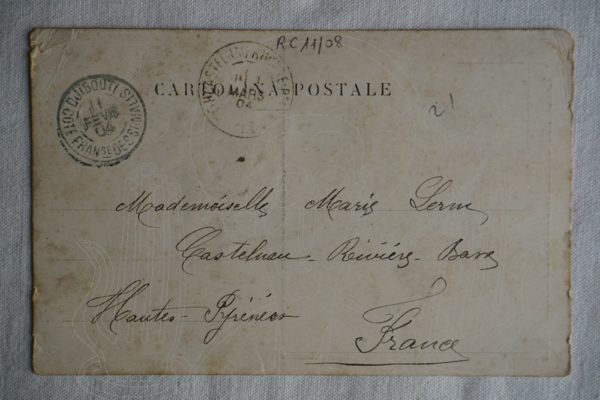 RC 11/08
CARTOLINA POSTALE
DJIBOUTI
COTE FRANSE DES SOMALIS
04
MARS
04
21
Mademoiselle Marie
Castelnau-Rivière-Basse
Hautes-Pyrénées
France